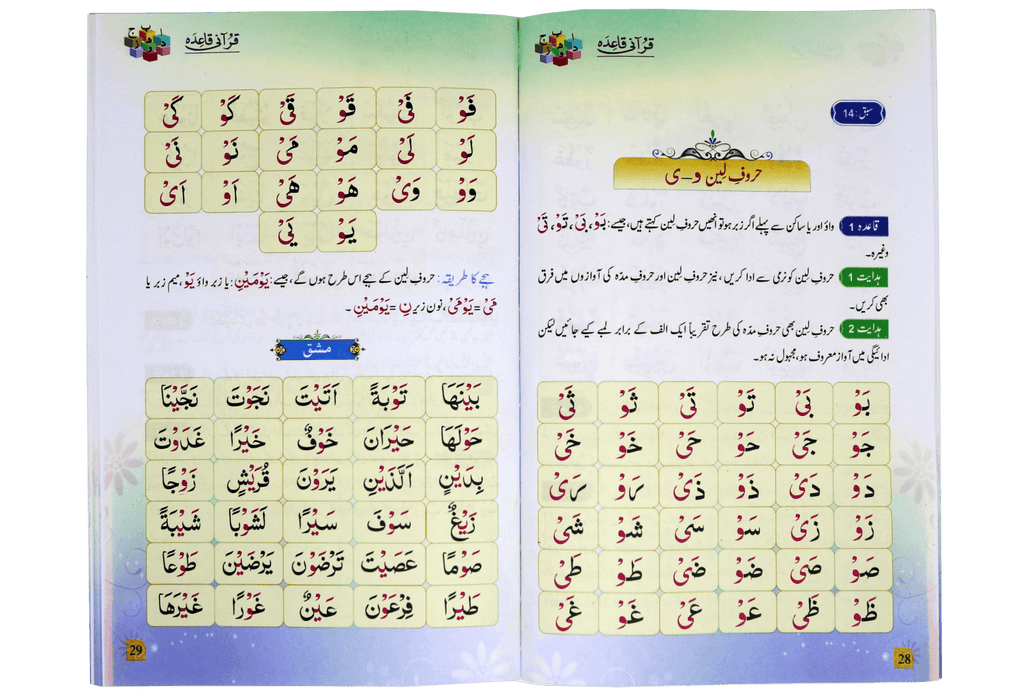 قرآنی قاعدہ
سبق: 14
حروفِ لِین و – ی
قاعدہ 1 واؤ اور یا ساکن سے پہلے اگر زبر ہو تو انھیں حروفِ لین کہتے ہیں، جیسے: بَوْ، بَیْ، تَوْ، تَیْ
وغیرہ۔
ہدایت 1 حروفِ لین کو نرمی سے ادا کریں، نیز حروفِ لین اور حروفِ مدّہ کی آوازوں میں فرق
بھی کریں۔
ہدایت 2 حروفِ لین بھی حروفِ مدّہ کی طرح تقریباً ایک الف کے برابر لمبے کیے جائیں لیکن
ادائیگی میں آواز معروف ہو، مجہول نہ ہو۔
بَوْ بَیْ تَوْ تَیْ ثَوْ ثَیْ
جَوْ جَیْ حَوْ حَیْ خَوْ خَیْ
دَوْ دَیْ ذَوْ ذَیْ رَوْ رَیْ
زَوْ زَیْ سَوْ سَیْ شَوْ شَیْ
صَوْ صَیْ ضَوْ ضَیْ طَوْ طَیْ
ظَوْ ظَیْ عَوْ عَیْ غَوْ غَیْ
28
قرآنی قاعدہ
فَوْ فَیْ قَوْ قَیْ کَوْ کَیْ
لَوْ لَیْ مَوْ مَیْ نَوْ نَیْ
وَوْ وَیْ هَوْ هَیْ اَوْ اَیْ
یَوْ یَیْ
ہجے کا طریقہ: حروفِ لین کے ہجے اس طرح ہوں گے، جیسے: یَوْمَیْنِ: یا زبر واؤ یَوْ، میم زبر یا
مَیْ = یَوْمَیْ، نون زیر نِ = یَوْمَیْنِ ۔
مشق
بَیْنَهَا تَوْبَةً اَتَیْتَ نَجَوْتَ نَجَّیْنَا
حَوْلَهَا حَیْرَانَ خَوْفٌ خَیْرًا غَدَوْتَ
بِدَیْنٍ اَلَّذَیْنِ یَرَوْنَ قُرَیْشٍ زَوْجًا
زَیْغٌ سَوْفَ سَیْرًا لَشَوْبًا شَیْبَةً
صَوْمًا عَصَیْتَ تَرْضَوْنَ یَرْضَیْنَ طَوْعًا
طَیْرًا فِرْعَوْنَ عَیْنٌ غَوْرًا غَیْرَهَا
29